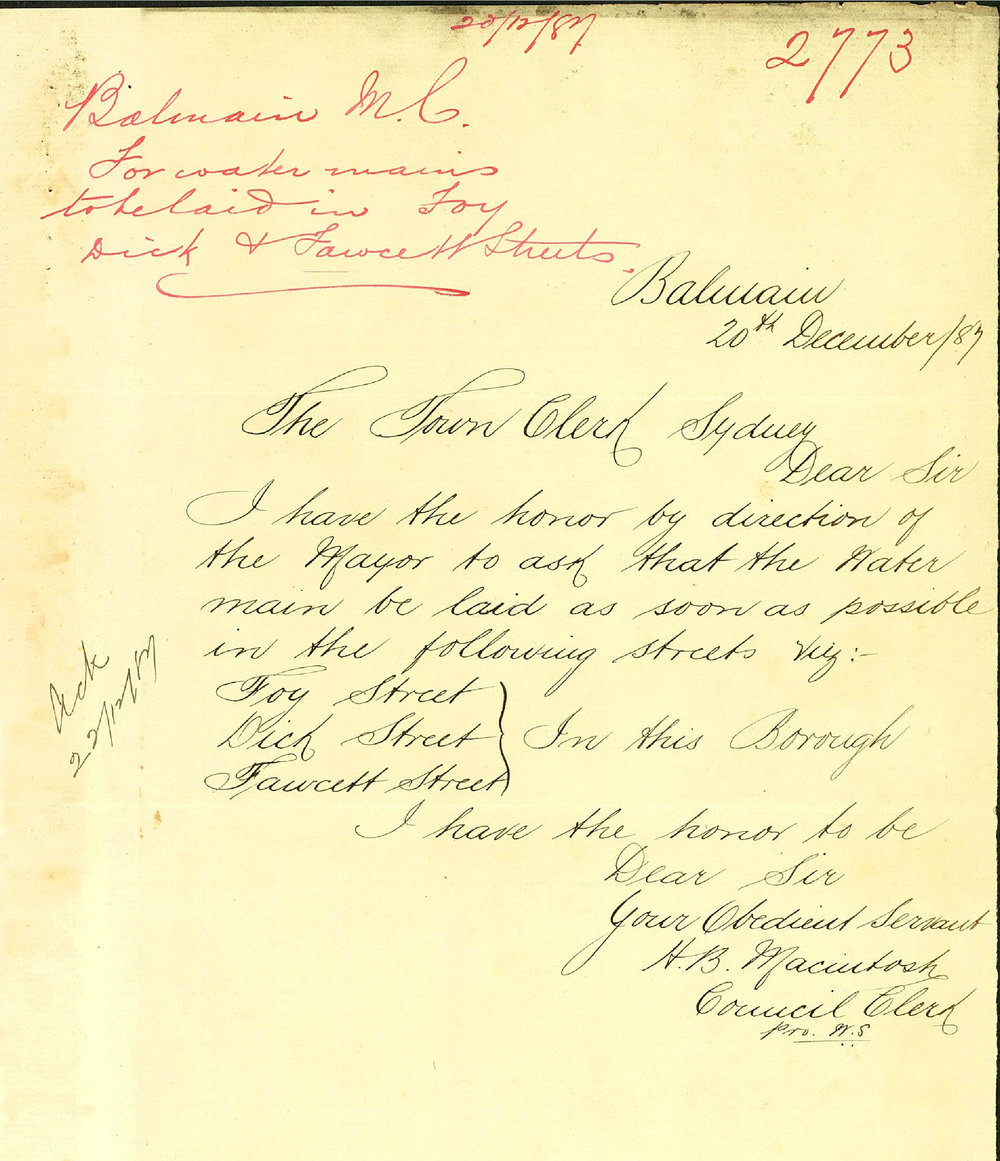 20/12/87
2773
Balmain M.C.
For water mains
to be laid in Foy
Dick & Fawcett Streets.
Balmain
20th December/87
The Town Clerk Sydney
Dear Sir
I have the honor by direction of
the Mayor to ask that the Water
main be laid as soon as possible
in the following streets viz:-
Foy Street
Dick Street } In this Borough
Fawcett Street
Ack
22/12/87
I have the honor to be
Dear Sir
Your Obedient Servant
H.B. Macintosh
Council Clerk
pro. W.S